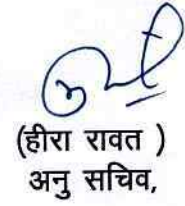 (हीरा रावत )
अनु सचिव,